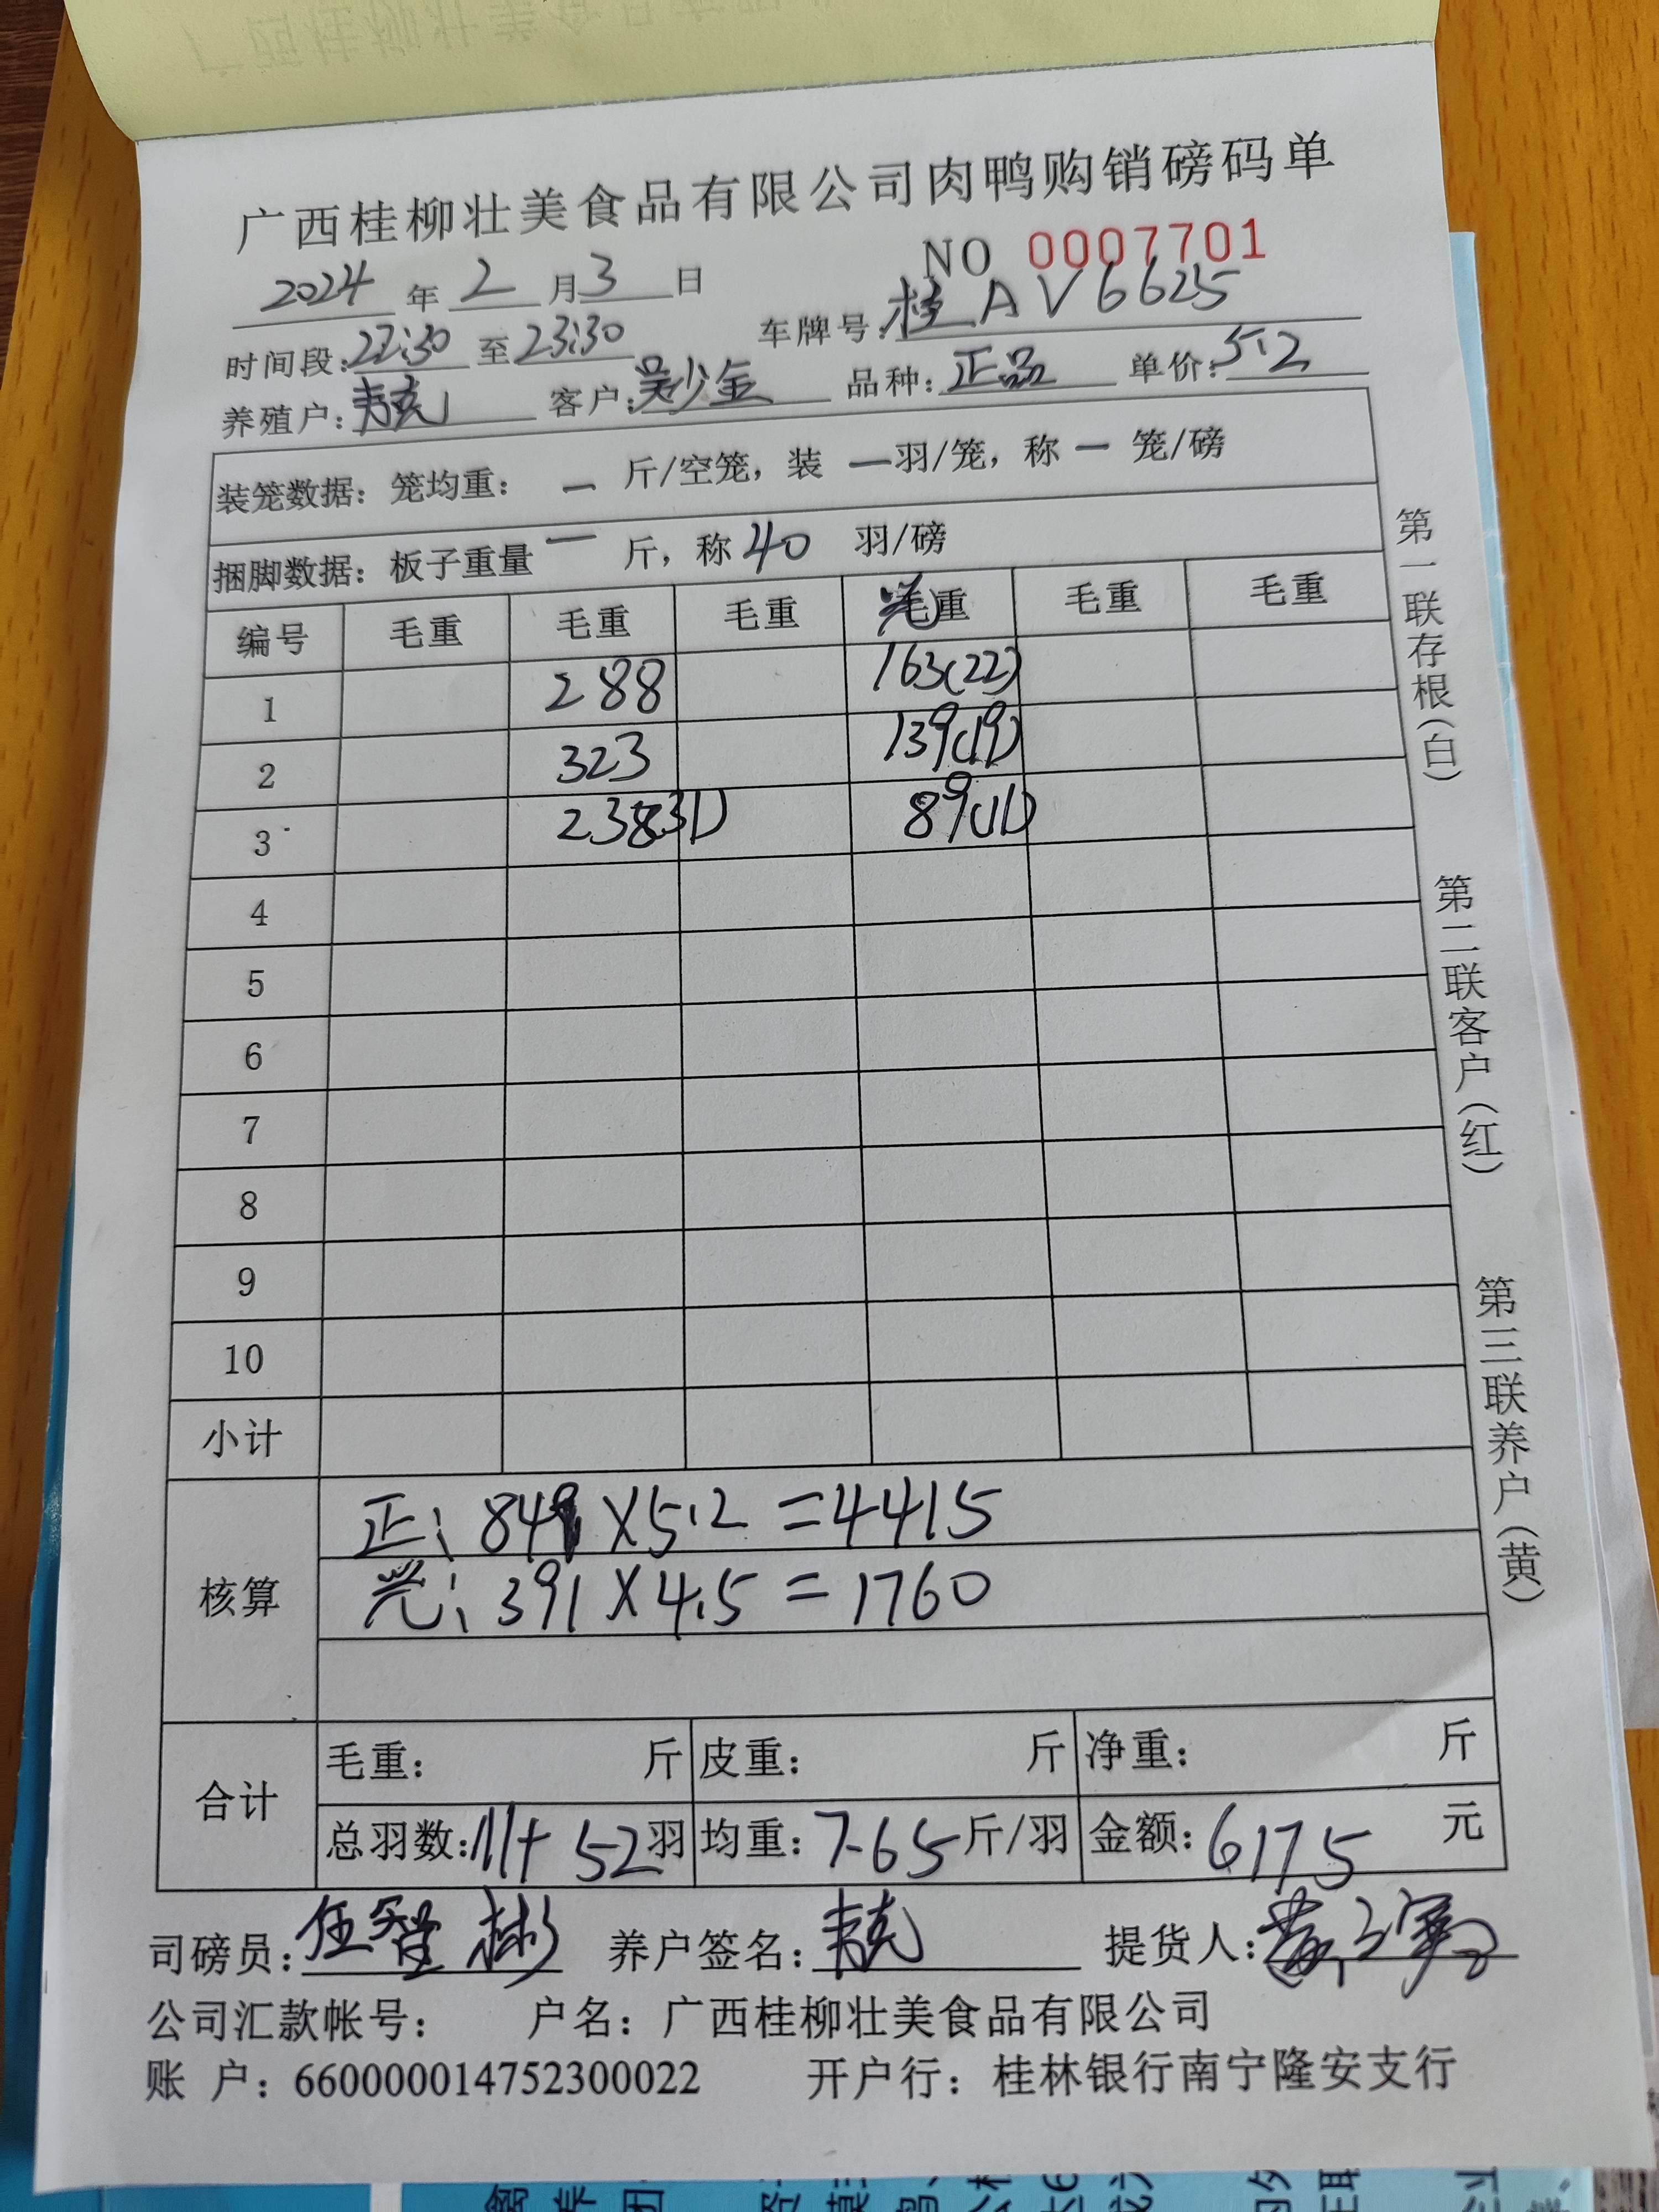 广西桂柳壮美食品有限公司肉鸭购销磅码单
NO 0007701
2024年2月3日
时间段:22:30至23:30 车牌号:桂AV6625
养殖户:韦克 客户:吴少金 品种:正品 单价:5.2
装笼数据：笼均重： — 斤/空笼，装 — 羽/笼，称 — 笼/磅
捆脚数据：板子重量 — 斤，称 40 羽/磅
编号 毛重 毛重 毛重 重 毛重 毛重
1 288 163(22)
2 323 139(19)
3 238(31) 89(11)
4
5
6
7
8
9
10
小计
核算
正: 849×5.2=4415
: 391×4.5=1760
合计
毛重： 斤 皮重： 斤 净重： 斤
总羽数:111+52羽 均重:7.65斤/羽 金额:6175元
司磅员: 养户签名:韦克 提货人:
公司汇款帐号： 户名：广西桂柳壮美食品有限公司
账 户：660000014752300022 开户行：桂林银行南宁隆安支行
第一联存根(白)
第二联客户(红)
第三联养户(黄)